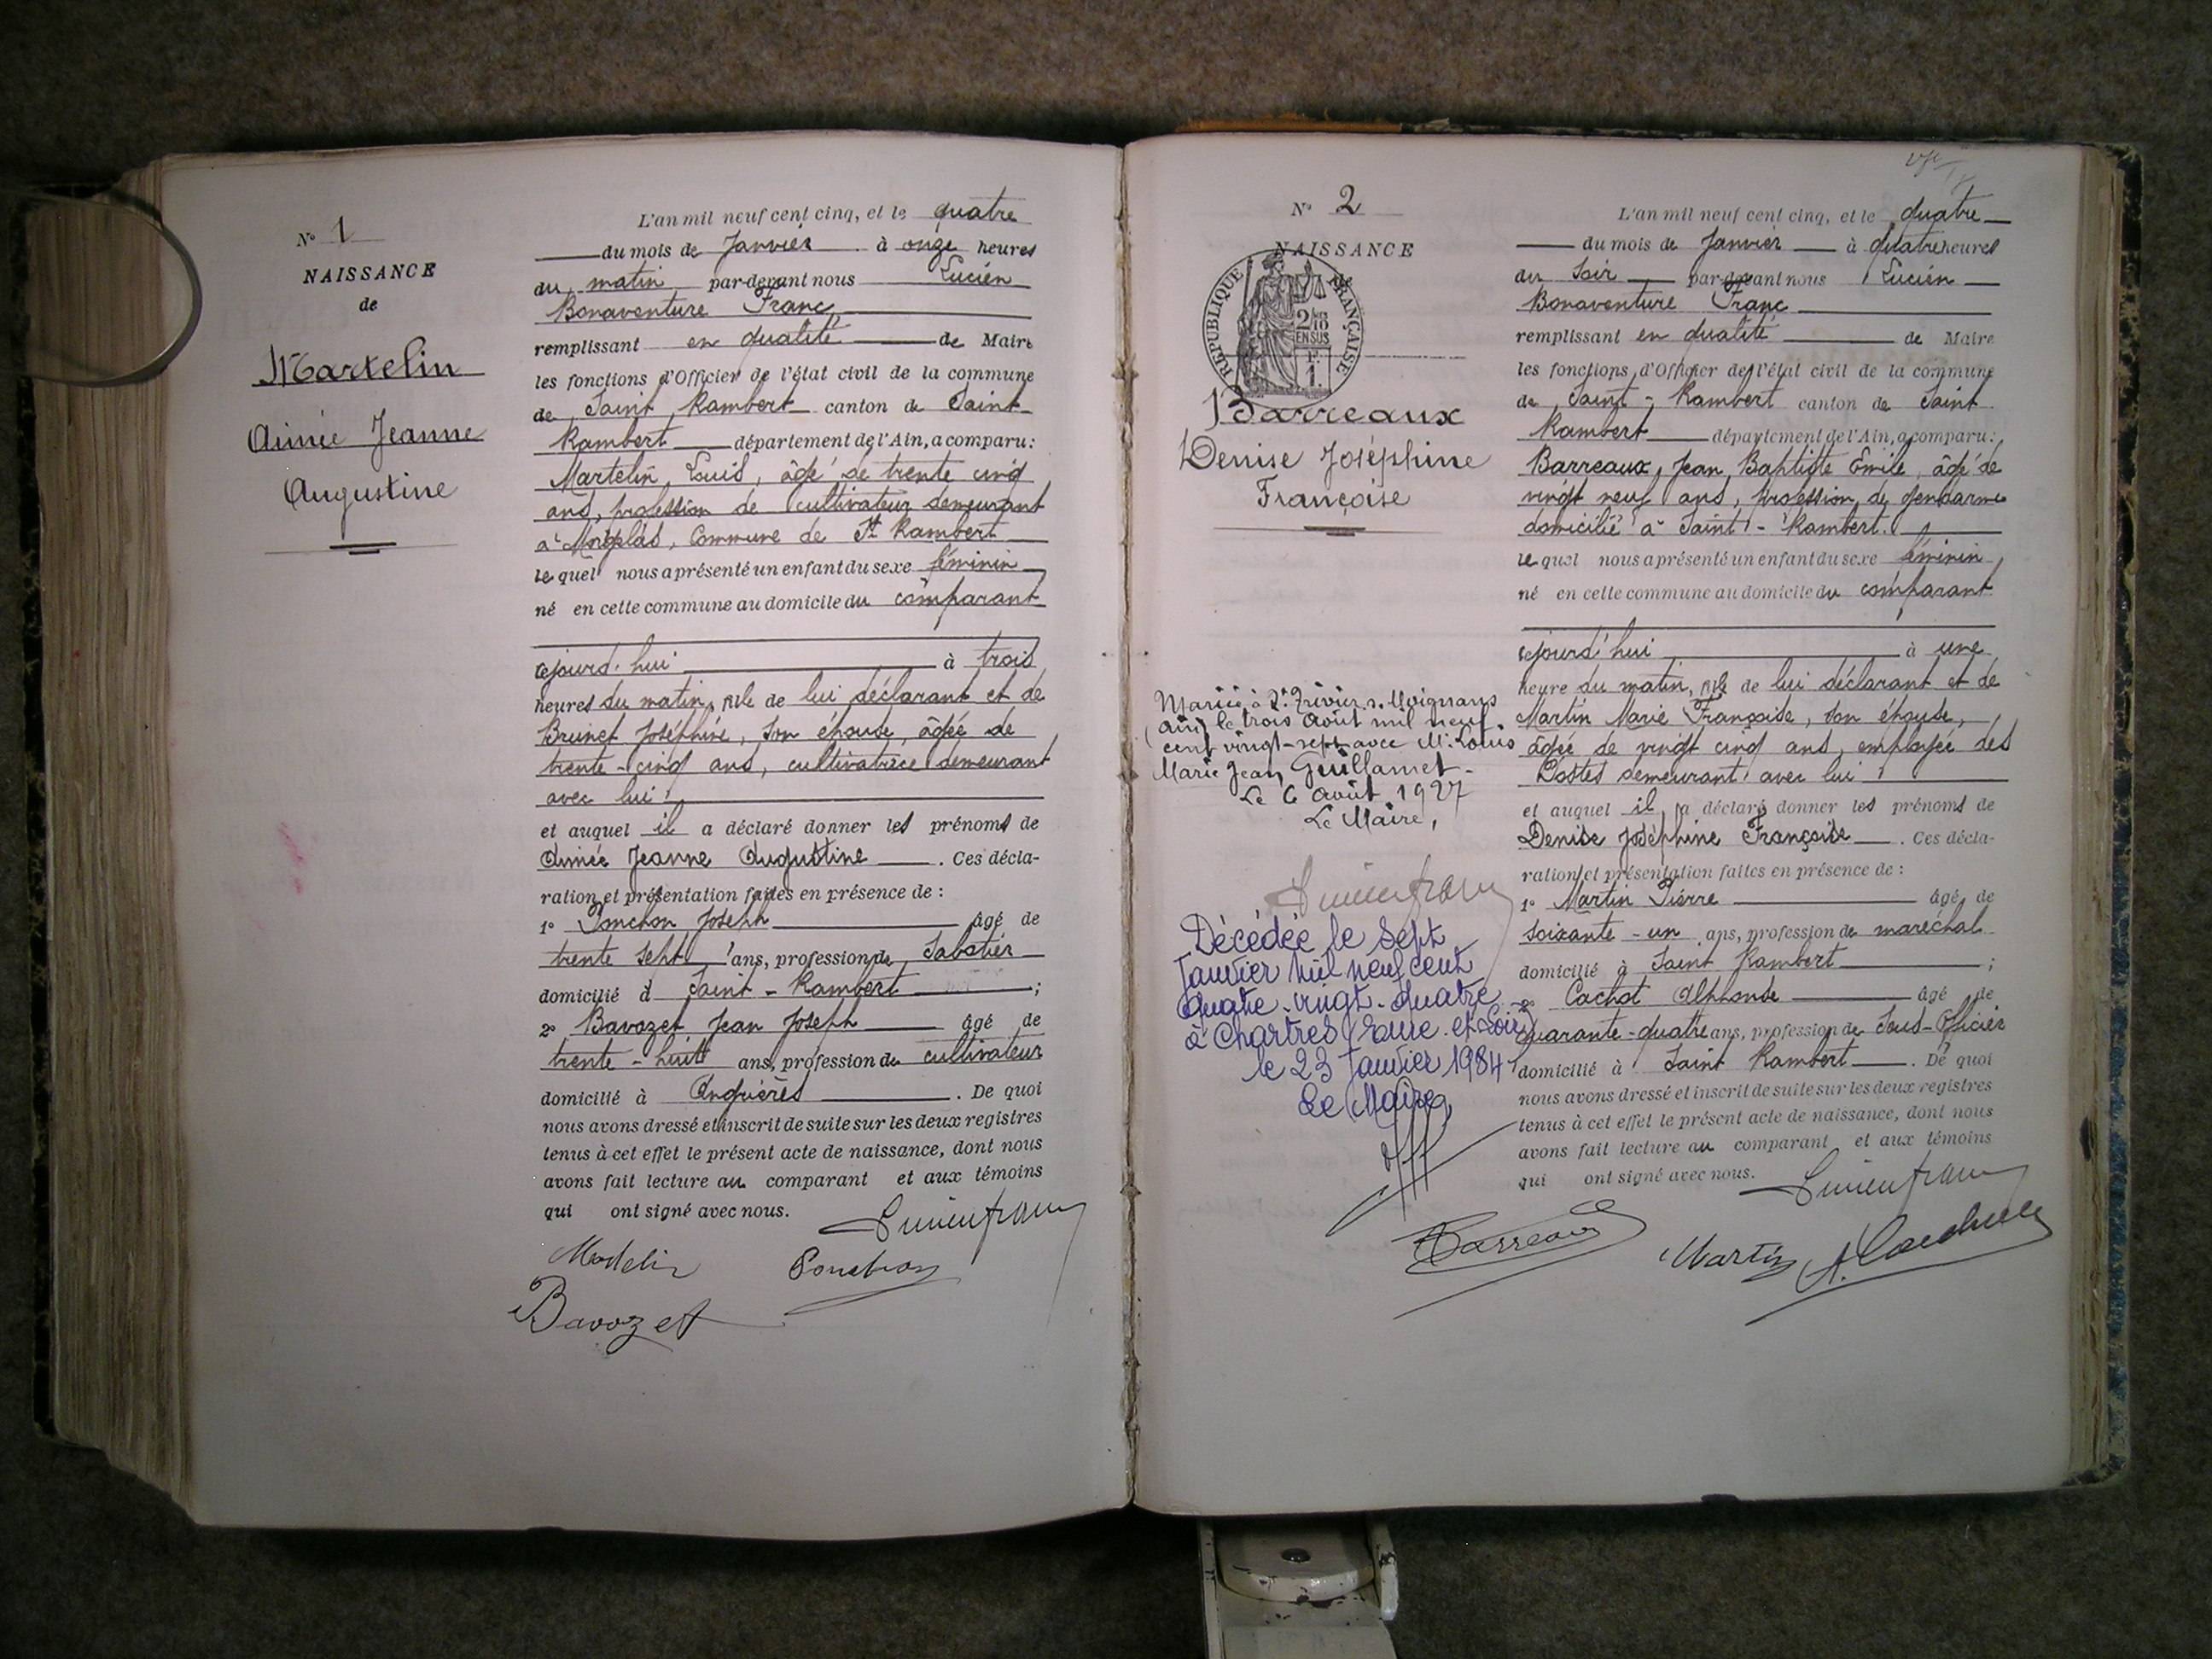 N° 1
NAISSANCE
de
Martelin
Aimée Jeanne
Augustine
L'an mil neuf cent cinq, et le quatre
du mois de Janvier à onze heures
du matin par-devant nous Lucien
Bonaventure Franc
remplissant en qualité de Maire
les fonctions d'Officier de l'état civil de la commune
de Saint Rambert canton de Saint
Rambert département de l'Ain, a comparu :
Martelin Louis, âgé de trente cinq
ans, profession de cultivateur demeurant
à Morgelas, Commune de St Rambert
lequel nous a présenté un enfant du sexe féminin
né en cette commune au domicile du comparant
cejourd'hui à trois
heures du matin, fille de lui déclarant et de
Brunet Joséphine, son épouse, âgée de
trente-cinq ans, cultivatrice demeurant
avec lui
et auquel il a déclaré donner les prénoms de
Aimée Jeanne Augustine. Ces décla-
ration et présentation faites en présence de :
1° Ponchon Joseph âgé de
trente sept ans, profession de Sabotier
domicilié à Saint-Rambert ;
2° Bavozet Jean Joseph âgé de
trente-huit ans, profession de cultivateur
domicilié à Angrières. De quoi
nous avons dressé et inscrit de suite sur les deux registres
tenus à cet effet le présent acte de naissance, dont nous
avons fait lecture au comparant et aux témoins
qui ont signé avec nous. Lucien franc
Martelin Ponchon
Bavozet
N° 2
NAISSANCE
de
RÉPUBLIQUE FRANÇAISE
2/10
EN SUS
1 F.
Barreaux
Denise Joséphine
Françoise
Mariée à St. Trivier s. Moignans
(Ain) le trois août mil neuf
cent vingt-sept avec M. Louis
Marie Jean Guillamet.
Le 6 Août 1927
Le Maire,
Lucien franc
Décédée le sept
Janvier mil neuf cent
quatre-vingt-quatre
à Chartres (Eure-et-Loir)
le 23 Janvier 1984
Le Maire,
L'an mil neuf cent cinq, et le quatre
du mois de Janvier à quatre heures
du soir par-devant nous Lucien
Bonaventure Franc
remplissant en qualité de Maire
les fonctions d'Officier de l'état civil de la commune
de Saint-Rambert canton de Saint
Rambert département de l'Ain, a comparu :
Barreaux, Jean Baptiste Emile, âgé de
vingt neuf ans, profession de gendarme
domicilié à Saint-Rambert.
lequel nous a présenté un enfant du sexe féminin
né en cette commune au domicile du comparant
cejourd'hui à une
heure du matin, fille de lui déclarant et de
Martin Marie Françoise, son épouse,
âgée de vingt cinq ans, employée des
Postes demeurant avec lui
et auquel il a déclaré donner les prénoms de
Denise Joséphine Françoise. Ces décla-
ration et présentation faites en présence de :
1° Martin Pierre âgé de
soixante-un ans, profession de maréchal
domicilié à Saint Rambert ;
2° Cachot Alphonse âgé de
quarante-quatre ans, profession de Sous-Officier
domicilié à Saint Rambert. De quoi
nous avons dressé et inscrit de suite sur les deux registres
tenus à cet effet le présent acte de naissance, dont nous
avons fait lecture au comparant et aux témoins
qui ont signé avec nous. Lucien franc
Barreaux Martin